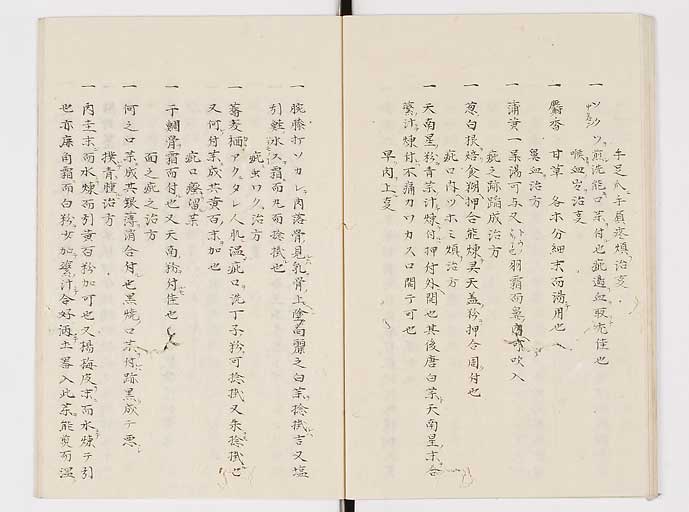 手足爪手負疼煩治支
一ツクソ煎洗能口茶付也疵遠血取亦佳也
喉血出治支
一麝香 甘草 各等分細末而湯用也
鼻血治方
一蒲黄一茶湯可与又 羽霜而鼻 吹入
疵之跡蹈成治方
一葱白根焙食糊押合能煉 天蓋粉押合固付也
疵口内ツホミ煩治方
一天南星粉青茶汁煉付押付外開也其後唐白茶天南星末合
藥汁煉付不痛カワカス口閉テ可也
早肉上支
一腕膝打ソカレ内落骨見乳骨上 高麗之白茶捻掋吉又塩
引鮭氷ス霜而丸而捻掋也
疵虫ワク治方
一蕎麦楢アクタレ人肌温疵口洗丁子粉可捻掋又朱捻掋也
又何付茶成共黄百末加也
疵口 留茶
一干鯛骨霜而付也又天南粉付佳也
面之疵之治方
一何之口茶成共 薄消合付也黒焼口茶付跡黒成テ悪
撲青腫治方
一肉圭末而水煉而引黄百粉加可也又楊梅皮末而水煉テ引
也亦鹿角霜而白粉女加藥汁合好酒土器入此茶能煎而温